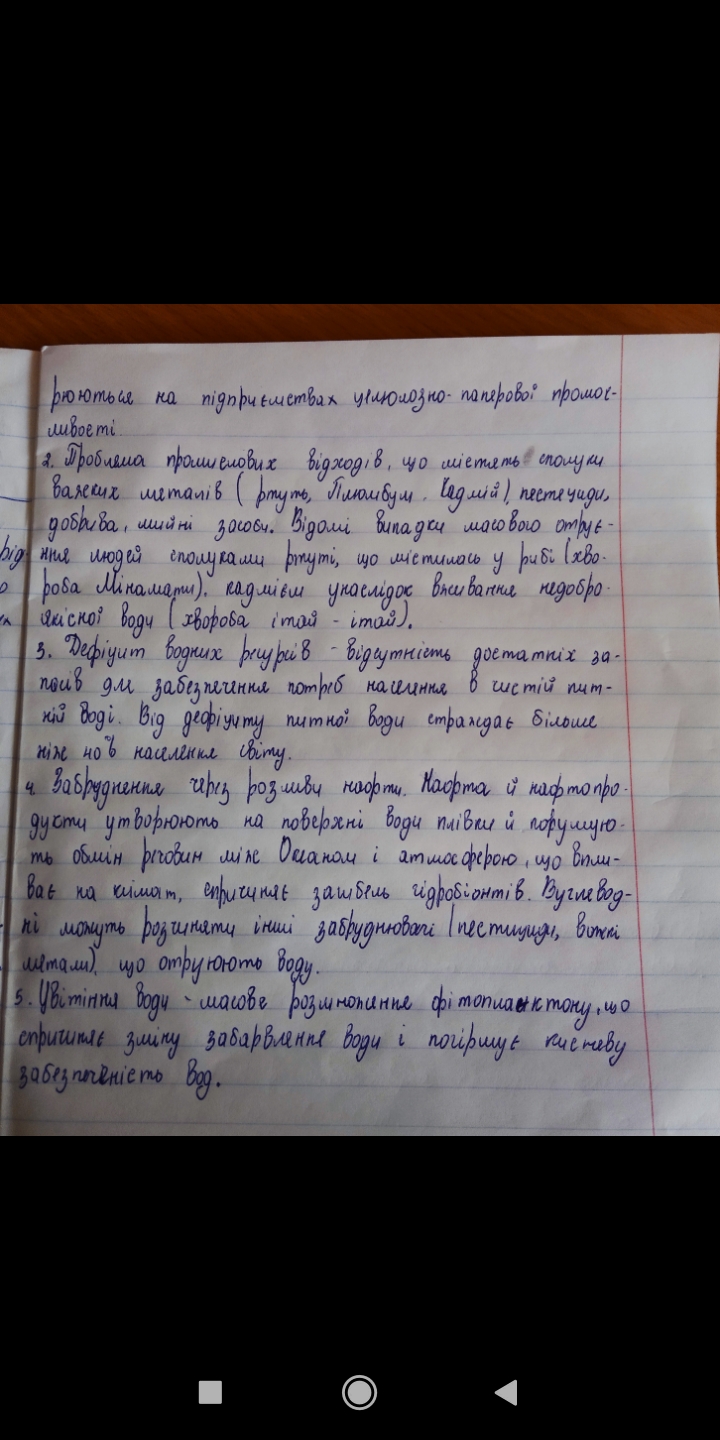 рюються на підприємствах целюлозно-паперової промис-
ливості.
2. Проблема промислових відходів, що містять сполуки
важких металів ( ртуть, Плюмбум, Кадмій), пестециди,
добрива, мийні засоби. Відомі випадки масового отрує-
ння людей сполуками ртуті, що містилась у рибі (хво-
роба Мінамати), кадмієм унаслідок вживання недобро-
якісної води ( хвороба ітай - ітай).
3. Дефіцит водних ресурсів - відсутність достатніх за-
пасів для забезпечення потреб населення в чистій пит-
ній воді. Від дефіциту питної води страждає більше
ніж 40% населення світу.
4. Забруднення через розливи нафти. Нафта й нафтопро-
дукти утворюють на поверхні води плівки й порушую-
ть обмін речовин між Океаном і атмосферою, що впли-
ває на клімат, спричиняє загибель гідробіонтів. Вуглевод-
ні можуть розчиняти інші забруднювачі (пестициди, важкі
метали), що отруюють воду.
5. Цвітіння води - масове розмноження фітопланктону, що
спричиняє зміну забарвлення води і погіршує кисневу
забезпеченість вод.
рід-
о